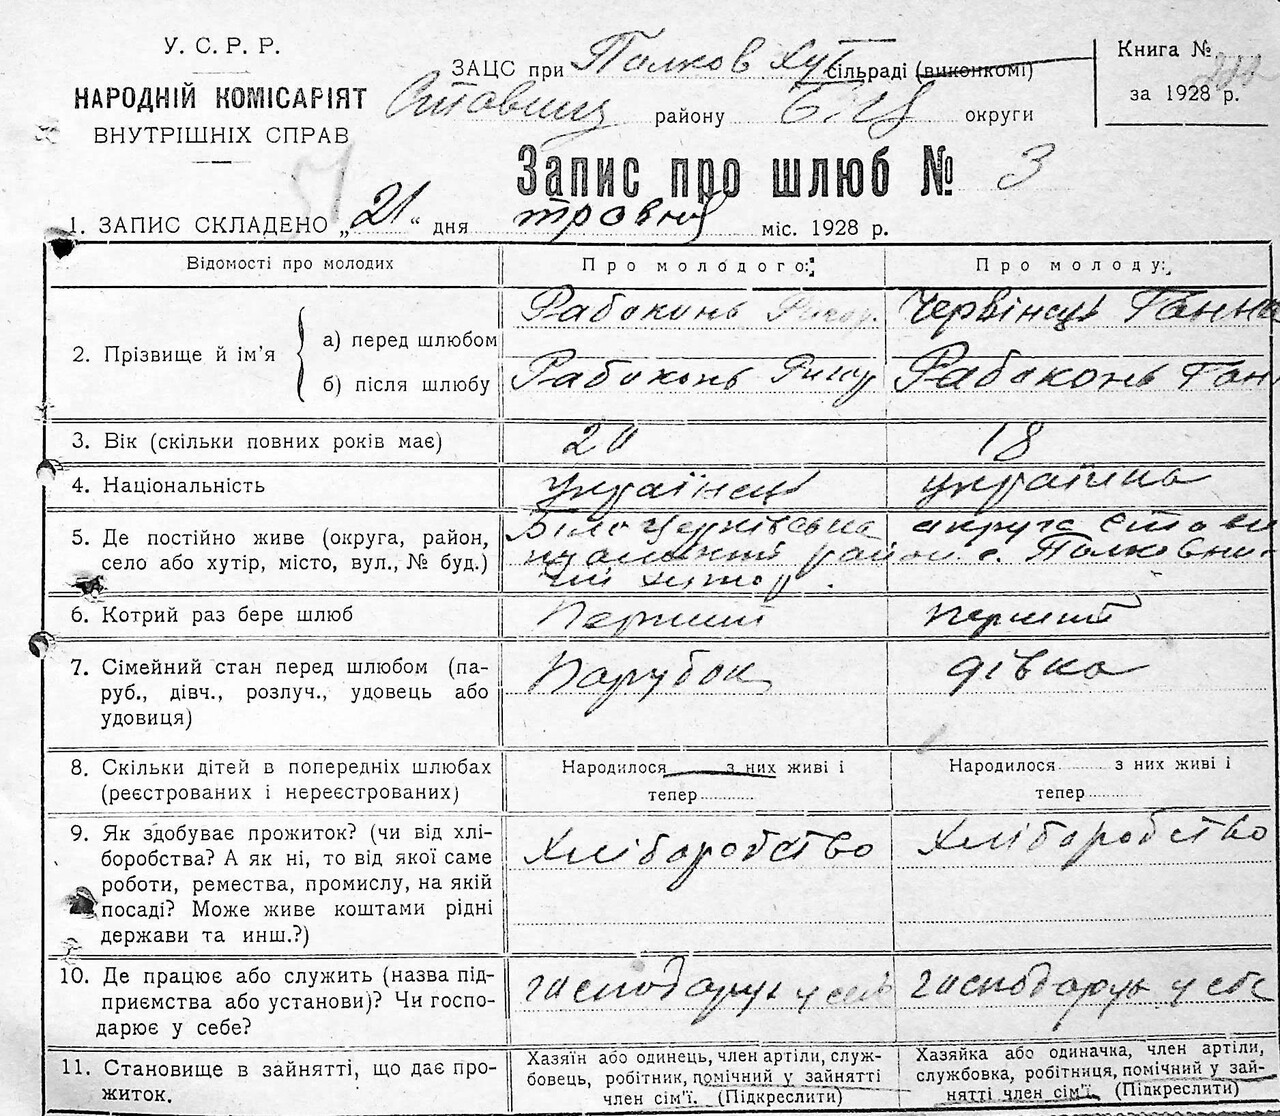 У. С. Р. Р.
НАРОДНІЙ КОМІСАРІЯТ
ВНУТРІШНІХ СПРАВ
ЗАЦС при Полков Хут сільраді (виконкомі)
Ставищ району Б.Ц. округи
Книга №
за 1928 р.
Запис про шлюб № 3
1. ЗАПИС СКЛАДЕНО „21“ дня травня міс. 1928 р.
Відомості про молодих
Про молодого:
Про молоду:
2. Прізвище й ім’я
а) перед шлюбом
Рабоконь Григор.
Червінець Ганна
б) після шлюбу
Рабоконь Григор
Рабоконь Ган
3. Вік (скільки повних років має)
20
18
4. Національність
українець
українка
5. Де постійно живе (округа, район,
село або хутір, місто, вул., № буд.)
Білоцерківська округа Стави
щанський район с. Полковни-
чий хутор
6. Котрий раз бере шлюб
перший
перший
7. Сімейний стан перед шлюбом (па-
руб., дівч., розлуч., удовець або
удовиця)
парубок
дівка
8. Скільки дітей в попередніх шлюбах
(реєстрованих і нереєстрованих)
Народилося з них живі і
тепер
Народилося з них живі і
тепер
9. Як здобуває прожиток? (чи від хлі-
боробства? А як ні, то від якої саме
роботи, ремества, промислу, на якій
посаді? Може живе коштами рідні
держави та инш.?)
Хліборобство
Хліборобство
10. Де працює або служить (назва під-
приємства або установи)? Чи госпо-
дарює у себе?
господарує у себе
господарує у себе
11. Становище в зайнятті, що дає про-
житок.
Хазяїн або одинець, член артіли, служ-
бовець, робітник, помічний у зайнятті
член сім’ї. (Підкреслити)
Хазяйка або одиначка, член артіли,
службовка, робітниця, помічний у зай-
нятті член сім’ї. (Підкреслити)